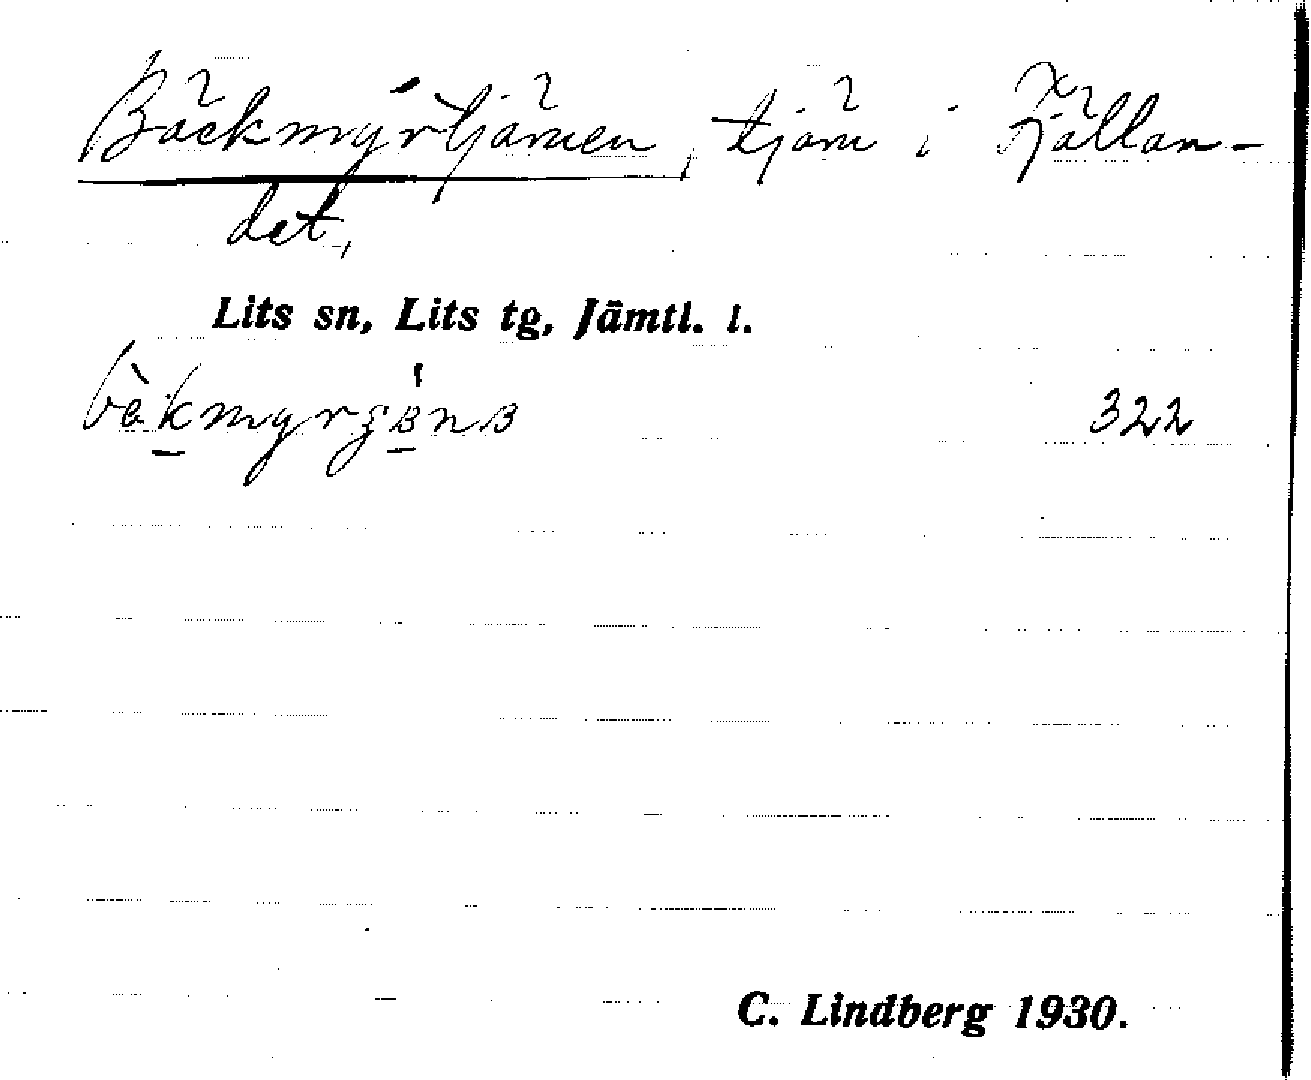 Bäckmyrtjärnen, tjärn i Fjällan-
det,
Lits sn, Lits tg, Jämtl. l.
322
C. Lindberg 1930.